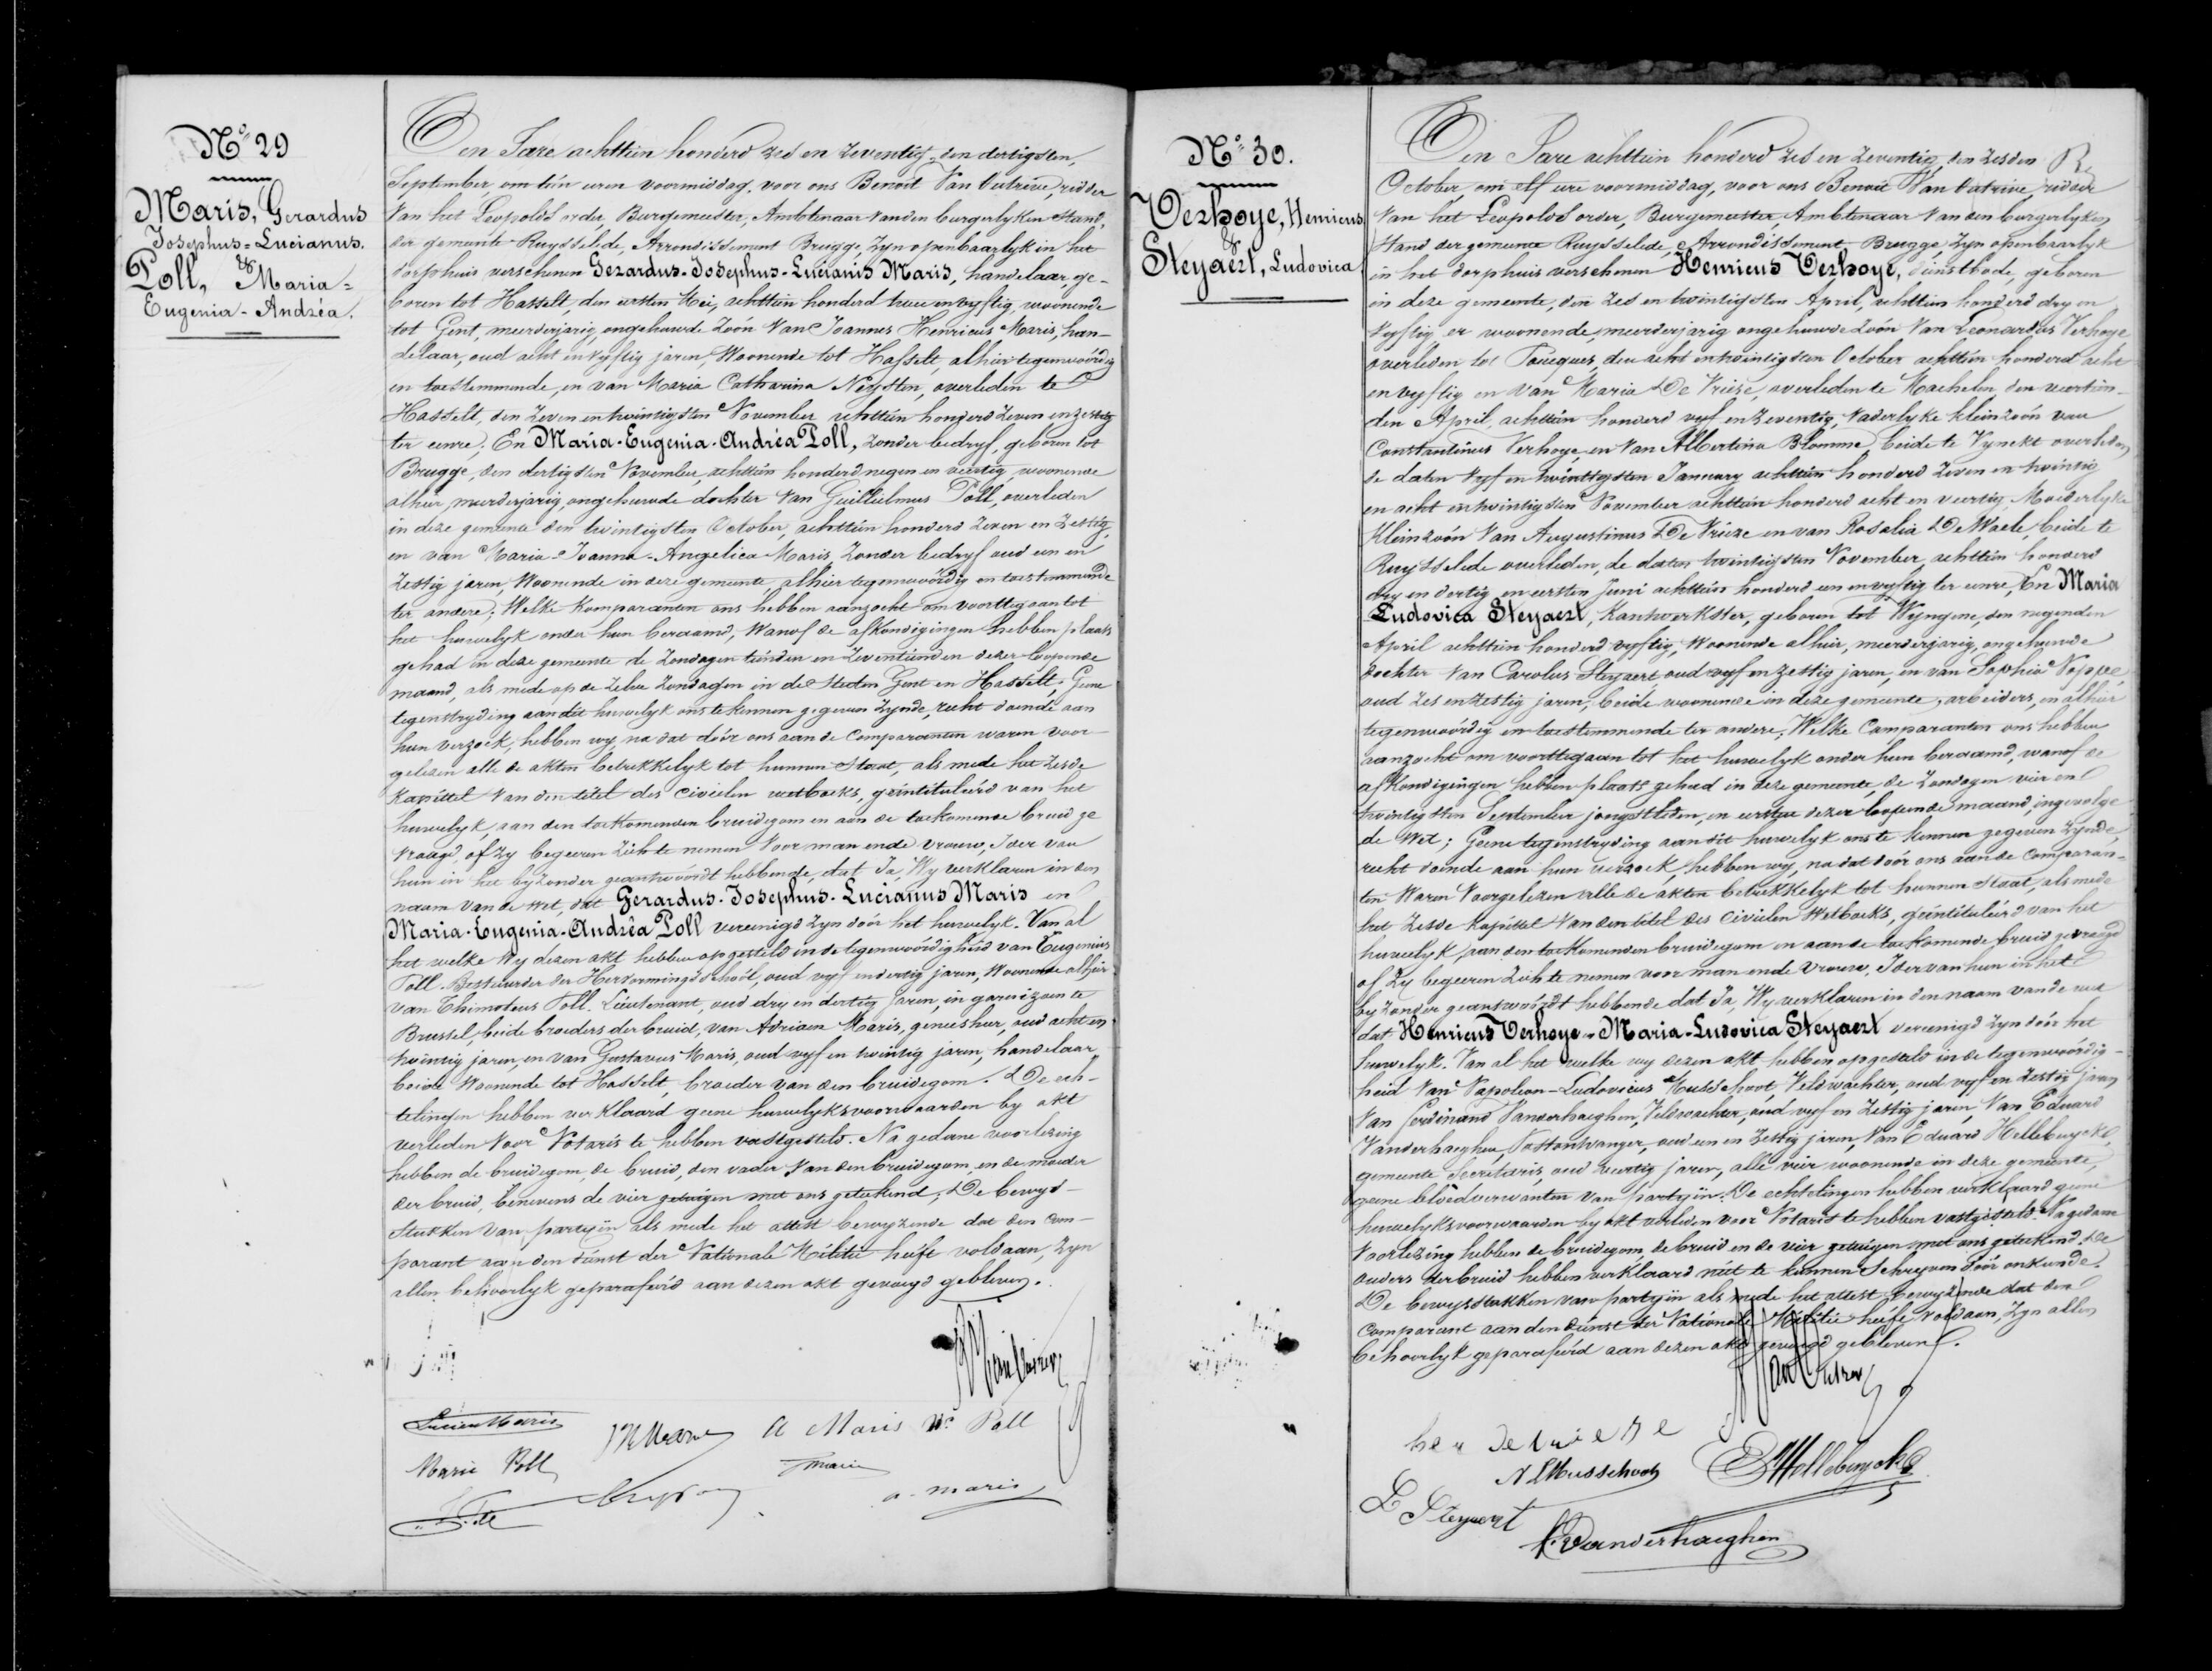 N° 29
Maris, Gerardus
Josephus-Lucianus.
&
Poll, Maria-
Eugenia-Andréa.
Den Jare achttien honderd zes en zeventig, den dertigsten
September om tien uren voormiddag, voor ons Benoit Van Outrive, ridder
van het Leopolds order, Burgemeester, Ambtenaar van den burgerlyken Stand
der gemeente Ruysselede, Arrondissement Brugge, zyn openbaarlyk in het
dorphuis verschenen Gerardus-Josephus-Lucianis Maris, handelaar, ge-
boren tot Hasselt, den eersten Mei, achttien honderd twee en vyftig, woonende
tot Gent, meerderjarig, ongehuwde zoon van Joannes Henricus Maris, han-
delaar, oud acht en vyftig jaren, woonende tot Hasselt, alhier tegenwoordig
en toestemmende, en van Maria Catharina Neysten, overleden te
Hasselt, den zeven en twintigsten November achttien honderd zeven en zestig
ter eenre; En Maria-Eugenia-Andréa Poll, zonder bedryf, geboren tot
Brugge, den dertigsten November, achttien honderd negen en veertig, woonende
alhier, meerderjarig, ongehuwde dochter van Guillielmus Poll, overleden
in deze gemeente den twintigsten October, achttien honderd zeven en zestig,
en van Maria-Joanna-Angelica Maris, zonder bedryf oud een en
zestig jaren, woonende in deze gemeente, alhier tegenwoordig en toestemmende
ter andere; Welke komparanten ons hebben aanzocht om voorttegaan tot
het huwelyk onder hun beraamd, wanof de afkondigingen hebben plaats
gehad in deze gemeente de zondagen tienden en zeventienden dezer loopende
maand, als mede op de zelve zondagen in de steden Gent en Hasselt; Geene
tegenstryding aan dit huwelyk ons te kennen gegeven zynde, recht doende aan
hun verzoek, hebben wy, na dat door ons aan de Comparanten waren voor-
gelezen alle de akten betrekkelyk tot hunnen Staat, als mede het zesde
Kapittel van den titel des civielen wetboeks, geïntituleërd van het
huwelyk, aan den toekomenden bruidegom en aan de toekomende bruid ge-
vraagd, of zy begeeren zich te nemen voor man ende vrouw, Jder van
hun in het byzonder geantwoordt hebbende, dat Ja, Wy verklaren in den
naam van de wet, dat Gerardus-Josephus-Lucianus Maris en
Maria-Eugenia-Andréa Poll vereenigd zyn dóór het huwelyk. Van al
het welke wy dezen akt hebben opgesteld in de tegenwoordigheid van Eugenius
Poll. Bestuurder der Hervormingsschool, oud vyf en dertig jaren, woonende alhier
van Thimoteus Poll. Lieutenant, oud dry en dertig jaren, in garnizoen te
Brussel, beide broeders der bruid, van Adriaan Maris, geneesheer, oud acht en
twintig jaren, en van Gustavus Maris, oud vyf en twintig jaren, handelaar
beide woonende tot Hasselt, broeder van den bruidegom. De ech-
telingen hebben verklaard geene huwelyksvoorwaarden by akt
verleden voor Notaris te hebben vastgesteld. Na gedane voorlezing
hebben de bruidegom, de bruid, den vader van den bruidegom, en de moeder
der bruid, benevens de vier getuigen met ons geteekend, De bewys-
stukken van partyën als mede het attest bewyzende dat den Com-
parant aan den dienst der Nationale Militie heeft voldaan, zyn
allen behoorlyk geparafeërd aan dezen akt gevoegd gebleven.
Lucien Maris
A Maris We Poll
Marie Poll
a. maris
N° 30.
Verhoye, Henricus
&
Steyaert, Ludovica
Den Jare achttien honderd zes en zeventig, den zesden
October, om elf ure voormiddag, voor ons Benoit Van Outrive ridder
van het Leopolds order, Burgemeester, Ambtenaar van den burgerlyken
Stand der gemeente Ruysselede, Arrondissement Brugge, zyn openbaarlyk
in het dorphuis verschenen Henricus Verhoye, dienstbode, geboren
in deze gemeente, den zes en twintigsten April, achttien honderd dry en
vyftig er woonende, meerderjarig ongehuwde zoón van Leonardus Verhoye
overleden tot Tourgues, den acht en twintigsten October achttien honderd acht
en vyftig en van Maria De Vrieze, overleden te Machelen, den veertien-
den April, achttien honderd vyf en zeventig, vaderlyke kleinzoón van
Constantinus Verhoye, en van Albertina Blomme, beide te Vynckt overleden,
de daten vyf en twintigsten January achttien honderd zeven en twintig
en acht en twintigsten November achttien honderd acht en veertig, Moederlyke
kleinzoón van Augustinus De Vrieze en van Rosalia De Waele, beide te
Ruysselede overleden, de daten twintigsten November, achttien honderd
dry en dertig en eersten Juni achttien honderd een en vyftig ter eenre, En Maria
Ludovica Steyaert, kantwerkster, geboren tot Wyngene, den negenden
April achttien honderd vyftig, woonende alhier, meerderjarig, ongehuwde
dochter van Carolus Steyaert, oud vyf en zestig jaren, en van Sophia Noppe,
oud zes en zestig jaren, beide woonende in deze gemeente, arbeiders, en alhier
tegenwoórdig en toestemmende ter andere; Welke Comparanten ons hebben
aanzocht om voorttegaan tot het huwelyk onder hun beraamd, wanof de
afkondigingen hebben plaats gehad in deze gemeente, de zondagen vier en
twintigsten September jongstleden, en eersten dezer loopende maand, ingevolge
de wet; Geene tegenstryding aan dit huwelyk ons te kennen gegeven zynde,
recht doende aan hun verzoek, hebben wy, na dat door ons aan de comparan-
ten waren voorgelezen alle de akten betrekkelyk tot hunnen staat, als mede
het zesde kapittel van den titel des civielen wetboeks, geïntituleërd van het
huwelyk, aan den toekomenden bruidegom en aan de toekomende bruid gevraagd
of zy begeeren zich te nemen voor man ende vrouw, Jder van hun in het
byzonder geantwoordt hebbende dat Ja, Wy verklaren in den naam van de wet
dat Henricus Verhoye en Maria-Ludovica Steyaert vereenigd zyn dóór het
huwelyk. Van al het welke wy dezen akt hebben opgesteld in de tegenwoórdig-
heid van Napoleon-Ludovicus Musschoot, Veldwachter, oud vyf en zestig jaren
Van Ferdinand Vanderhaeghen, Veldwachter, oud vyf en zestig jaren, Van Eduard
Vanderhaeghen, Postontvanger, oud een en zestig jaren, Van Eduard Hellebuyck,
gemeente Secretaris, oud veertig jaren, alle vier woonende in deze gemeente,
geene bloedverwanten van partyën. De echtelingen hebben verklaard geene
huwelyksvoorwaarden by akt verleden voor Notaris te hebben vastgesteld. Na gedane
voorlezing hebben de bruidegom, de bruid en de vier getuigen met ons geteekend. De
ouders der bruid hebben verklaard niet te kunnen schryven dóór onkunde.
De bewysstukken van partyën als mede het attest bewyzende dat den
comparant aan den dienst der Nationale Militie heeft voldaan, zyn allen
behoorlyk geparafeërd aan dezen akt gevoegd gebleven.
N L Musschoot
E Hellebuyck
L Steyaert
F. Vanderhaeghen